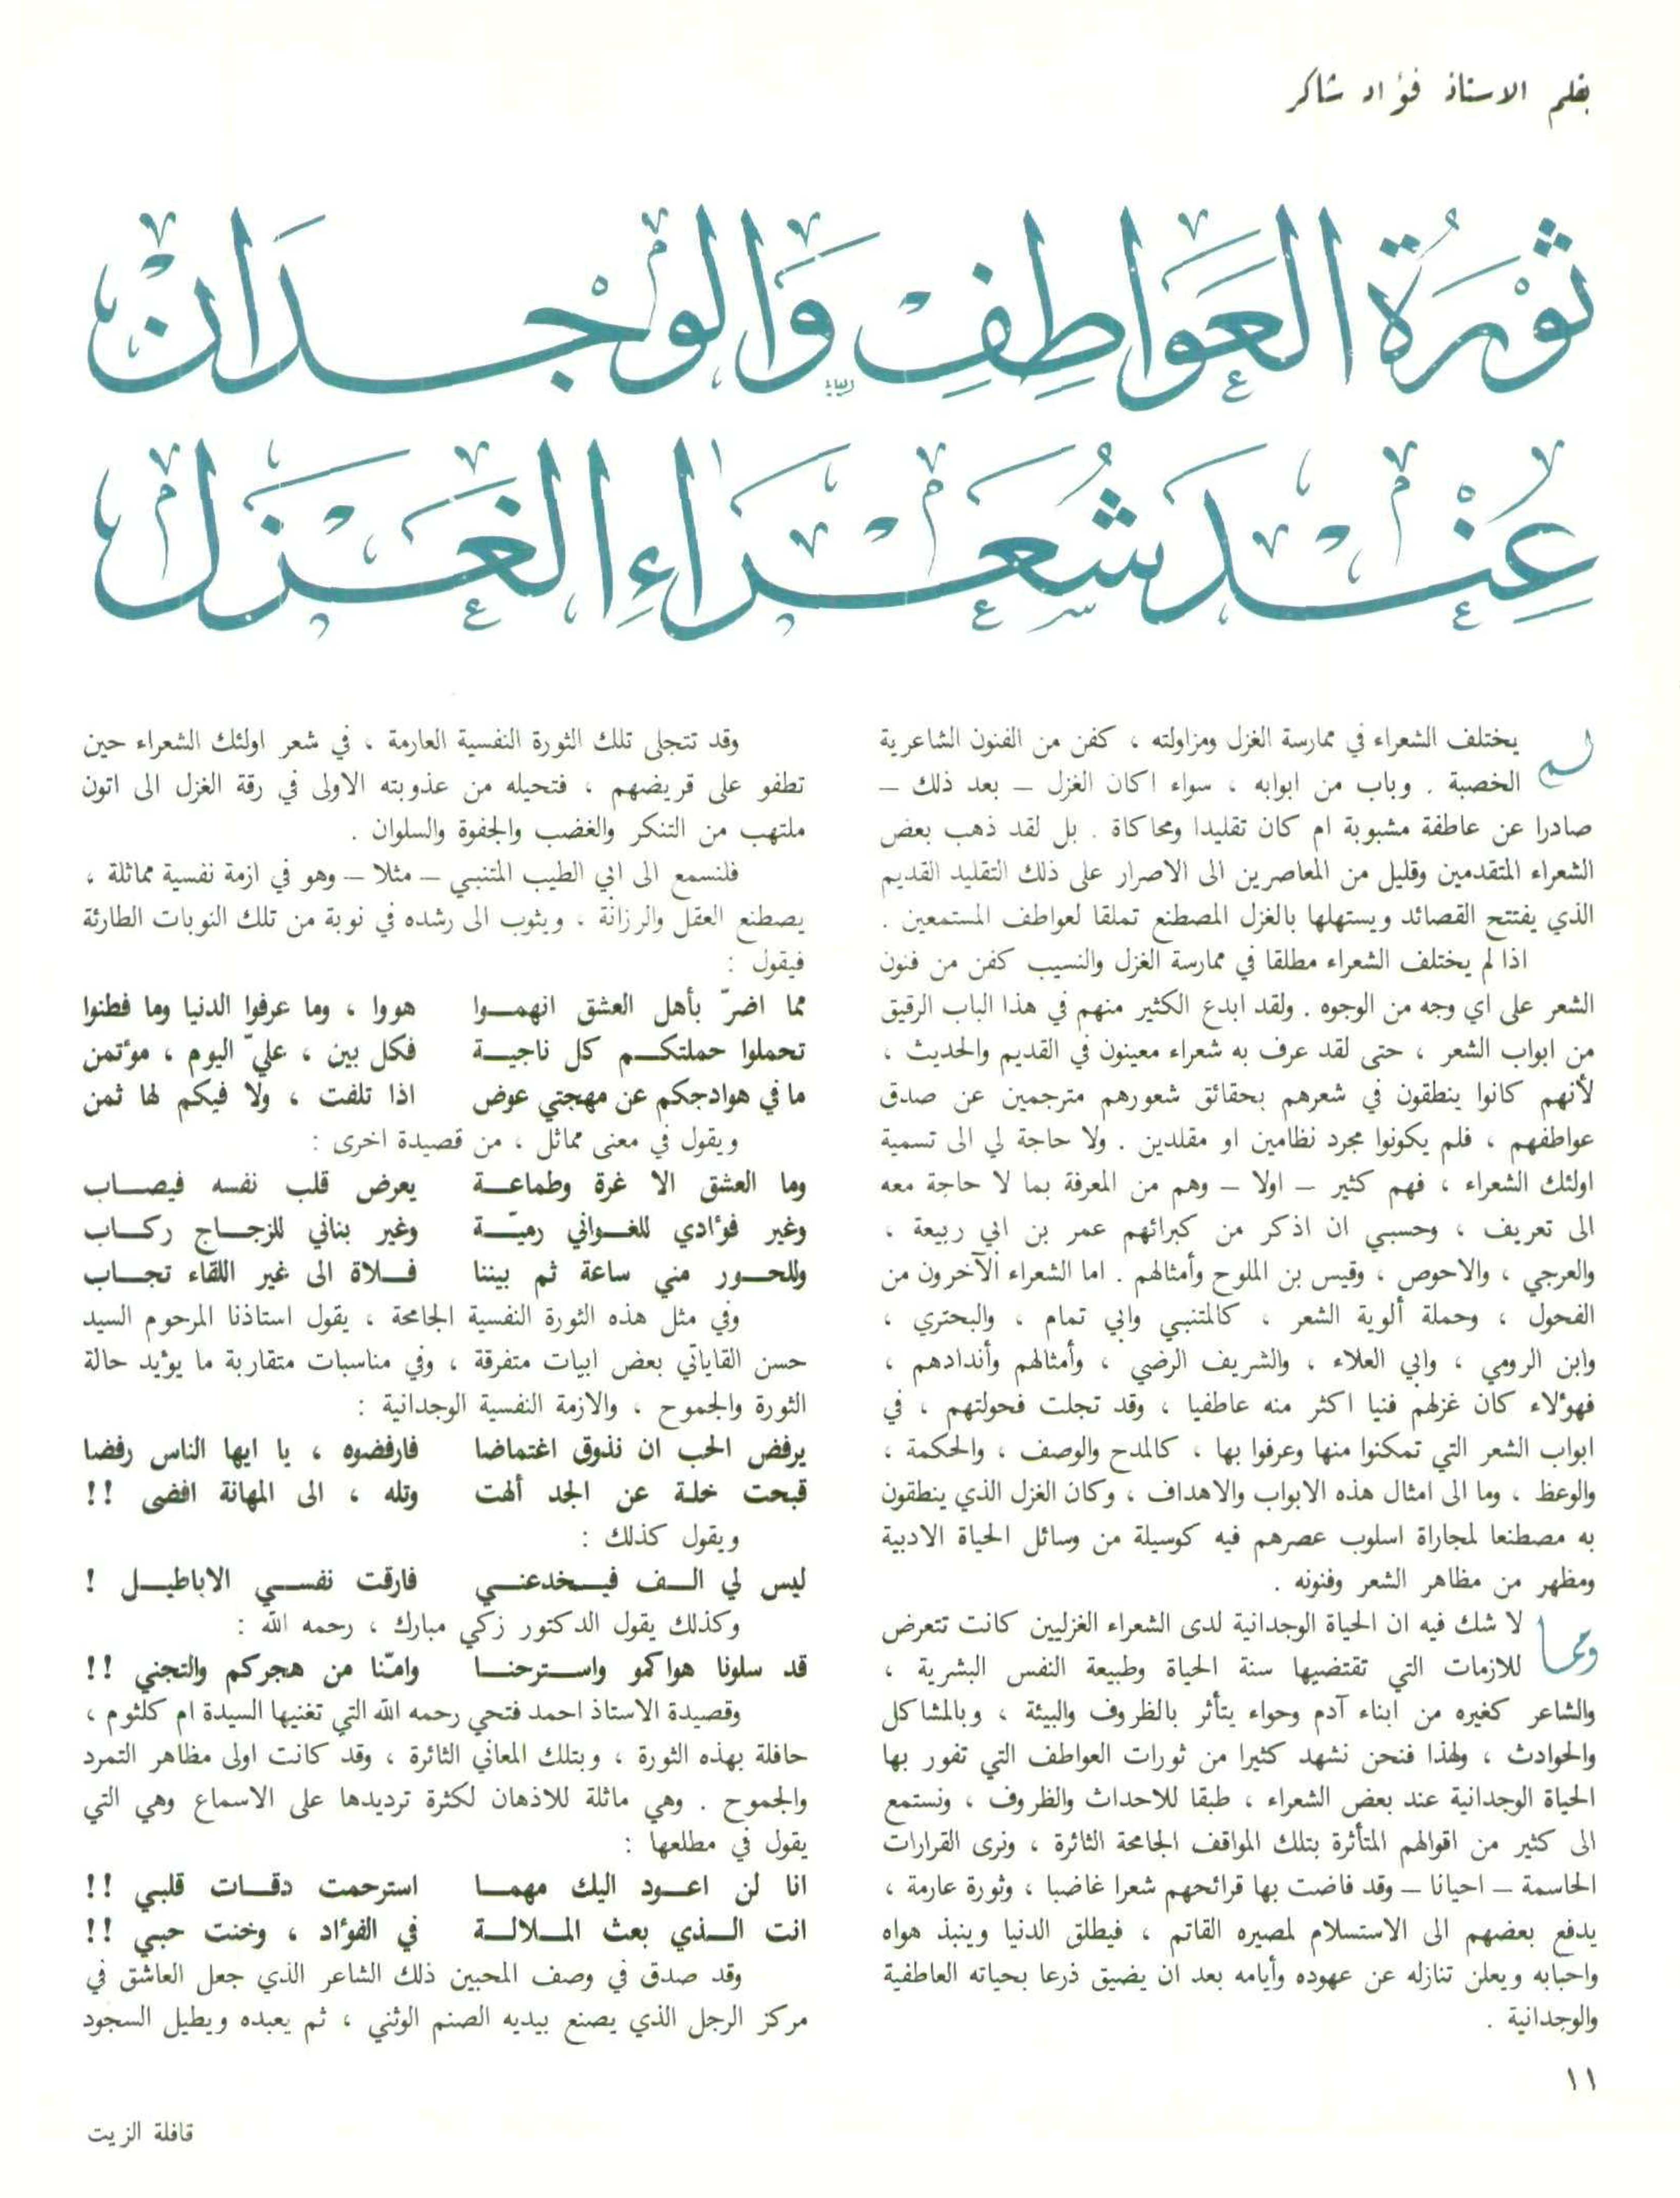 بقلم الاستاذ فؤاد شاكر
ثَوْرَةُ العَوَاطِفِ وَالوِجْدَانْ
عِنْدَ شُعَرَاءِ الغَزَل
لم يختلف الشعراء في ممارسة الغزل ومزاولته ، كفن من الفنون الشاعرية
الخصبة . وباب من ابوابه ، سواء اكان الغزل – بعد ذلك –
صادرا عن عاطفة مشبوبة ام كان تقليدا ومحاكاة . بل لقد ذهب بعض
الشعراء المتقدمين وقليل من المعاصرين الى الاصرار على ذلك التقليد القديم
الذي يفتتح القصائد ويستهلها بالغزل المصطنع تملقا لعواطف المستمعين .
اذا لم يختلف الشعراء مطلقا في ممارسة الغزل والنسيب كفن من فنون
الشعر على اي وجه من الوجوه . ولقد ابدع الكثير منهم في هذا الباب الرقيق
من ابواب الشعر ، حتى لقد عرف به شعراء معينون في القديم والحديث ،
لأنهم كانوا ينطقون في شعرهم بحقائق شعورهم مترجمين عن صدق
عواطفهم ، فلم يكونوا مجرد نظامين او مقلدين . ولا حاجة لي الى تسمية
اولئك الشعراء ، فهم كثير – اولا – وهم من المعرفة بما لا حاجة معه
الى تعريف ، وحسبي ان اذكر من كبرائهم عمر بن ابي ربيعة ،
والعرجي ، والاحوص ، وقيس بن الملوح وأمثالهم . اما الشعراء الآخرون من
الفحول ، وحملة ألوية الشعر ، كالمتنبي وابي تمام ، والبحتري ،
وابن الرومي ، وابي العلاء ، والشريف الرضي ، وأمثالهم وأندادهم ،
فهؤلاء كان غزلهم فنيا اكثر منه عاطفيا ، وقد تجلت فحولتهم ، في
ابواب الشعر التي تمكنوا منها وعرفوا بها ، كالمدح والوصف ، والحكمة ،
والوعظ ، وما الى امثال هذه الابواب والاهداف ، وكان الغزل الذي ينطقون
به مصطنعا لمجاراة اسلوب عصرهم فيه كوسيلة من وسائل الحياة الادبية
ومظهر من مظاهر الشعر وفنونه .
ومما لا شك فيه ان الحياة الوجدانية لدى الشعراء الغزليين كانت تتعرض
للازمات التي تقتضيها سنة الحياة وطبيعة النفس البشرية ،
والشاعر كغيره من ابناء آدم وحواء يتأثر بالظروف والبيئة ، وبالمشاكل
والحوادث ، ولهذا فنحن نشهد كثيرا من ثورات العواطف التي تفور بها
الحياة الوجدانية عند بعض الشعراء ، طبقا للاحداث والظروف ، ونستمع
الى كثير من اقوالهم المتأثرة بتلك المواقف الجامحة الثائرة ، ونرى القرارات
الحاسمة – احيانا – وقد فاضت بها قرائحهم شعرا غاضبا ، وثورة عارمة ،
يدفع بعضهم الى الاستسلام لمصيره القاتم ، فيطلق الدنيا وينبذ هواه
واحبابه ويعلن تنازله عن عهوده وأيامه بعد ان يضيق ذرعا بحياته العاطفية
والوجدانية .
وقد تتجلى تلك الثورة النفسية العارمة ، في شعر اولئك الشعراء حين
تطفو على قريضهم ، فتحيله من عذوبته الاولى في رقة الغزل الى اتون
ملتهب من التنكر والغضب والجفوة والسلوان .
فلنسمع الى ابي الطيب المتنبي – مثلا – وهو في ازمة نفسية مماثلة ،
يصطنع العقل والرزانة ، ويثوب الى رشده في نوبة من تلك النوبات الطارئة
فيقول :
مما اضرّ بأهل العشق انهمـوا هووا ، وما عرفوا الدنيا وما فطنوا
تحملوا حملتكـم كل ناجيـة فكل بين ، عليّ اليوم ، مؤتمن
ما في هوادجكم عن مهجتي عوض اذا تلفت ، ولا فيكم لها ثمن
ويقول في معنى مماثل ، من قصيدة اخرى :
وما العشق الا غرة وطماعـة يعرض قلب نفسه فيصـاب
وغير فؤادي للغـواني رميّـة وغير بناني للزجـاج ركـاب
وللحـور مني ساعة ثم بيننا فـلاة الى غير اللقاء تجـاب
وفي مثل هذه الثورة النفسية الجامحة ، يقول استاذنا المرحوم السيد
حسن القاياتي بعض ابيات متفرقة ، وفي مناسبات متقاربة ما يؤيد حالة
الثورة والجموح ، والازمة النفسية الوجدانية :
يرفض الحب ان نذوق اغتماضا فارفضوه ، يا ايها الناس رفضا
قبحت خلـة عن الجد ألهت وتله ، الى المهانة افضى !!
ويقول كذلك :
ليس لي الـف فيـخدعنـي فارقت نفسـي الاباطيـل !
وكذلك يقول الدكتور زكي مبارك ، رحمه الله :
قد سلونا هواكمو واسـترحنـا وامنّا من هجركم والتجني !!
وقصيدة الاستاذ احمد فتحي رحمه الله التي تغنيها السيدة ام كلثوم ،
حافلة بهذه الثورة ، وبتلك المعاني الثائرة ، وقد كانت اولى مظاهر التمرد
والجموح . وهي ماثلة للاذهان لكثرة ترديدها على الاسماع وهي التي
يقول في مطلعها :
انا لن اعـود اليك مهمـا استرحمت دقـات قلبـي !!
انت الـذي بعث المـلالـة في الفؤاد ، وخنت حبي !!
وقد صدق في وصف المحبين ذلك الشاعر الذي جعل العاشق في
مركز الرجل الذي يصنع بيديه الصنم الوثني ، ثم يعبده ويطيل السجود
١١
قافلة الزيت